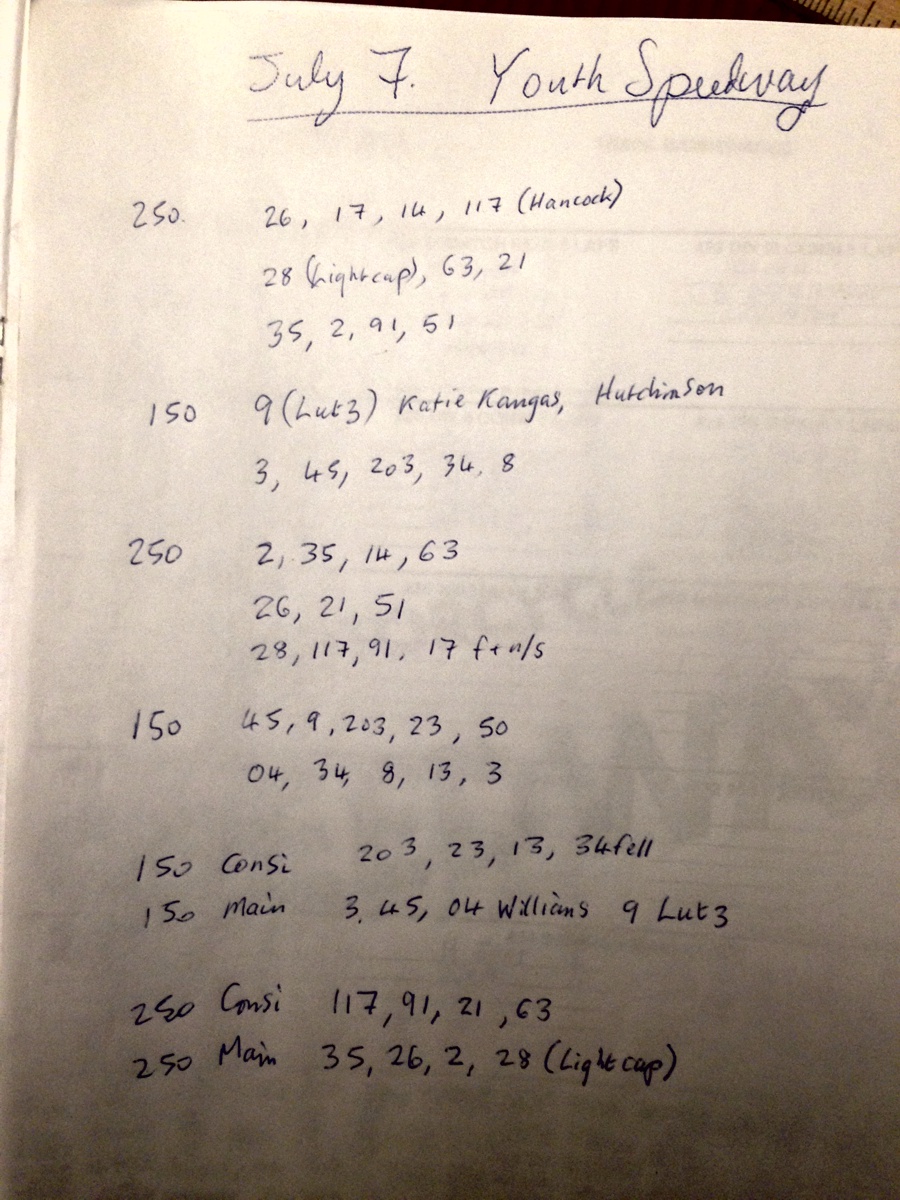 July 7. Youth Speedway
250. 26, 17, 14, 117 (Hancock)
28 (Lightcap), 63, 21
35, 2, 91, 51
150 9 (Lutz) Katie Kangas, Hutchinson
3, 45, 203, 34, 8
250 2, 35, 14, 63
26, 21, 51
28, 117, 91, 17 f+n/s
150 45, 9, 203, 23, 50
04, 34, 8, 13, 3
150 Consi 203, 23, 13, 34 fell
150 Main 3, 45, 04 Willians 9 Lutz
250 Consi 117, 91, 21, 63
250 Main 35, 26, 2, 28 (Lightcap)